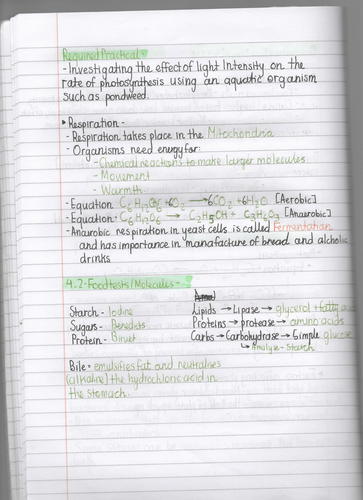 Required Practical -
- Investigating the effect of light Intensity on the
rate of photosynthesis using an aquatic organism
such as pondweed.
• Respiration -
- Respiration takes place in the Mitochondria
- Organisms need energy for:
- Chemical reactions to make larger molecules
- Movement
- Warmth
- Equation C6H12O6 + 6O2 → 6CO2 + 6H2O [Aerobic]
- Equation - C6H12O6 → C2H5OH + [Anaerobic]
- Anarobic respiration in yeast cells is called Fermentation
and has importance in manafacture of bread and alcholic
drinks.
4.2 - Food tests/Molecules -
Starch - Iodine
Sugars - Benedicts
Protein - Biruet
Lipids → Lipase → glycerol + fatty
Proteins → protease → amino acids
Carbs → Carbohydrase → Simple glucose
↳ Amalyse - Starch
Bile - emulsifies fat and neutralises
(alkaline) the hydrochloric acid in
the stomach.